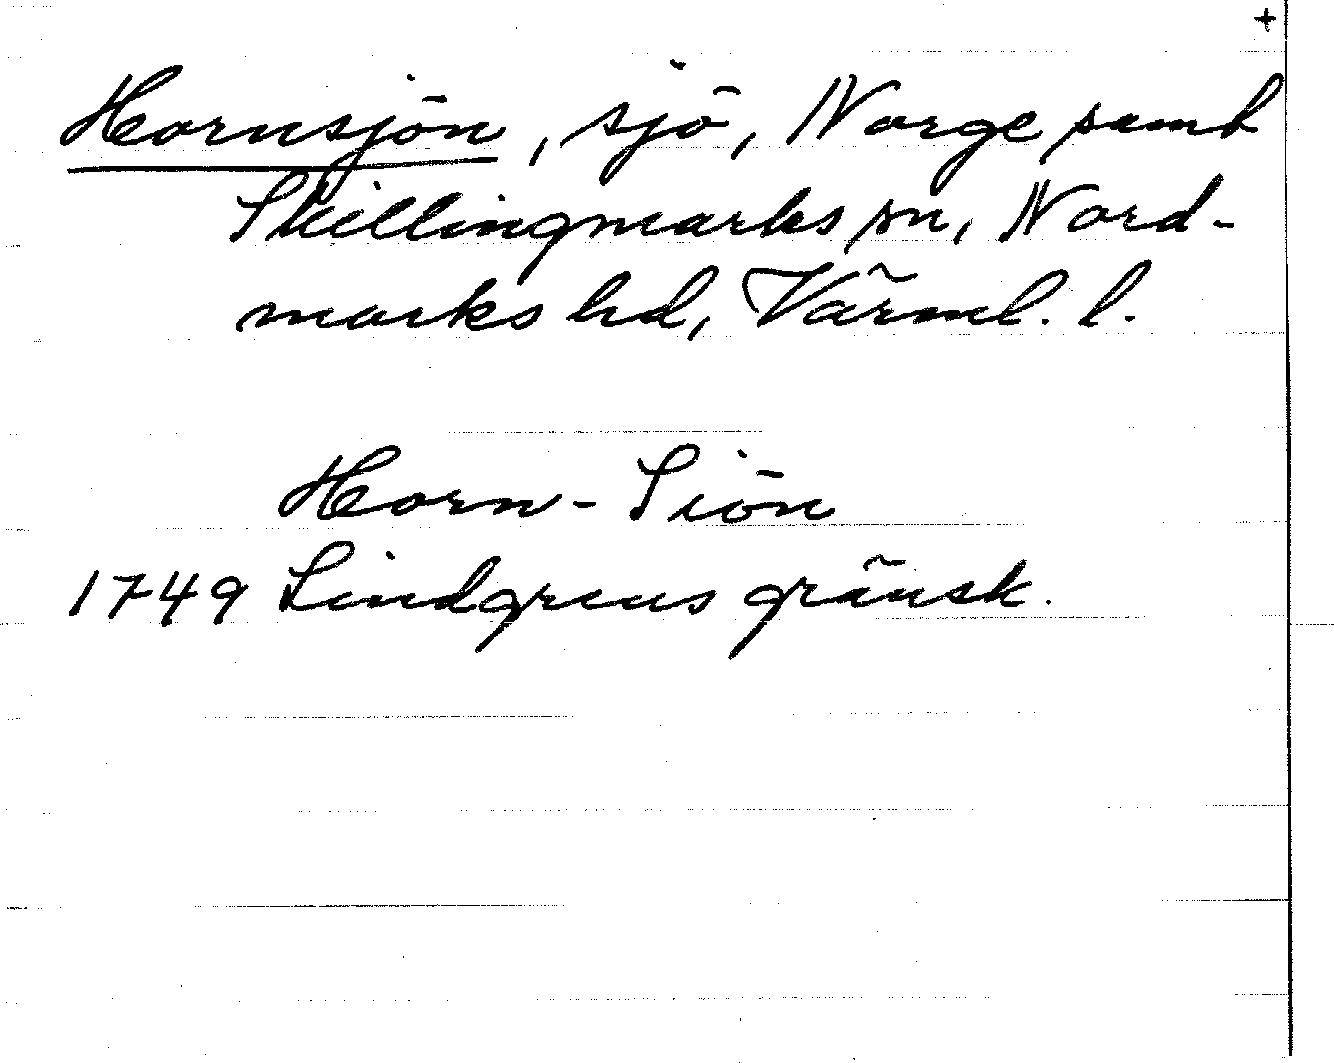 +
Hornsjön, sjö, Norge samt
Skillingmarks sn, Nord-
marks hd, Värml. l.
Horn-Siön
1749 Lindgrens gränsk.